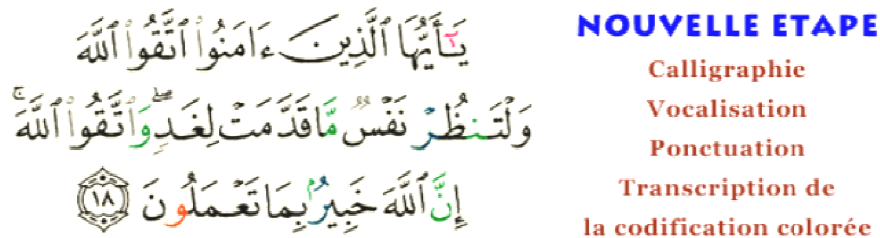 يَٰٓأَيُّهَا ٱلَّذِينَ ءَامَنُوا۟ ٱتَّقُوا۟ ٱللَّهَ
وَلْتَنظُرْ نَفْسٌ مَّا قَدَّمَتْ لِغَدٍ ۖ وَٱتَّقُوا۟ ٱللَّهَ ۚ
إِنَّ ٱللَّهَ خَبِيرٌۢ بِمَا تَعْمَلُونَ ١٨
NOUVELLE ETAPE
Calligraphie
Vocalisation
Ponctuation
Transcription de
la codification colorée